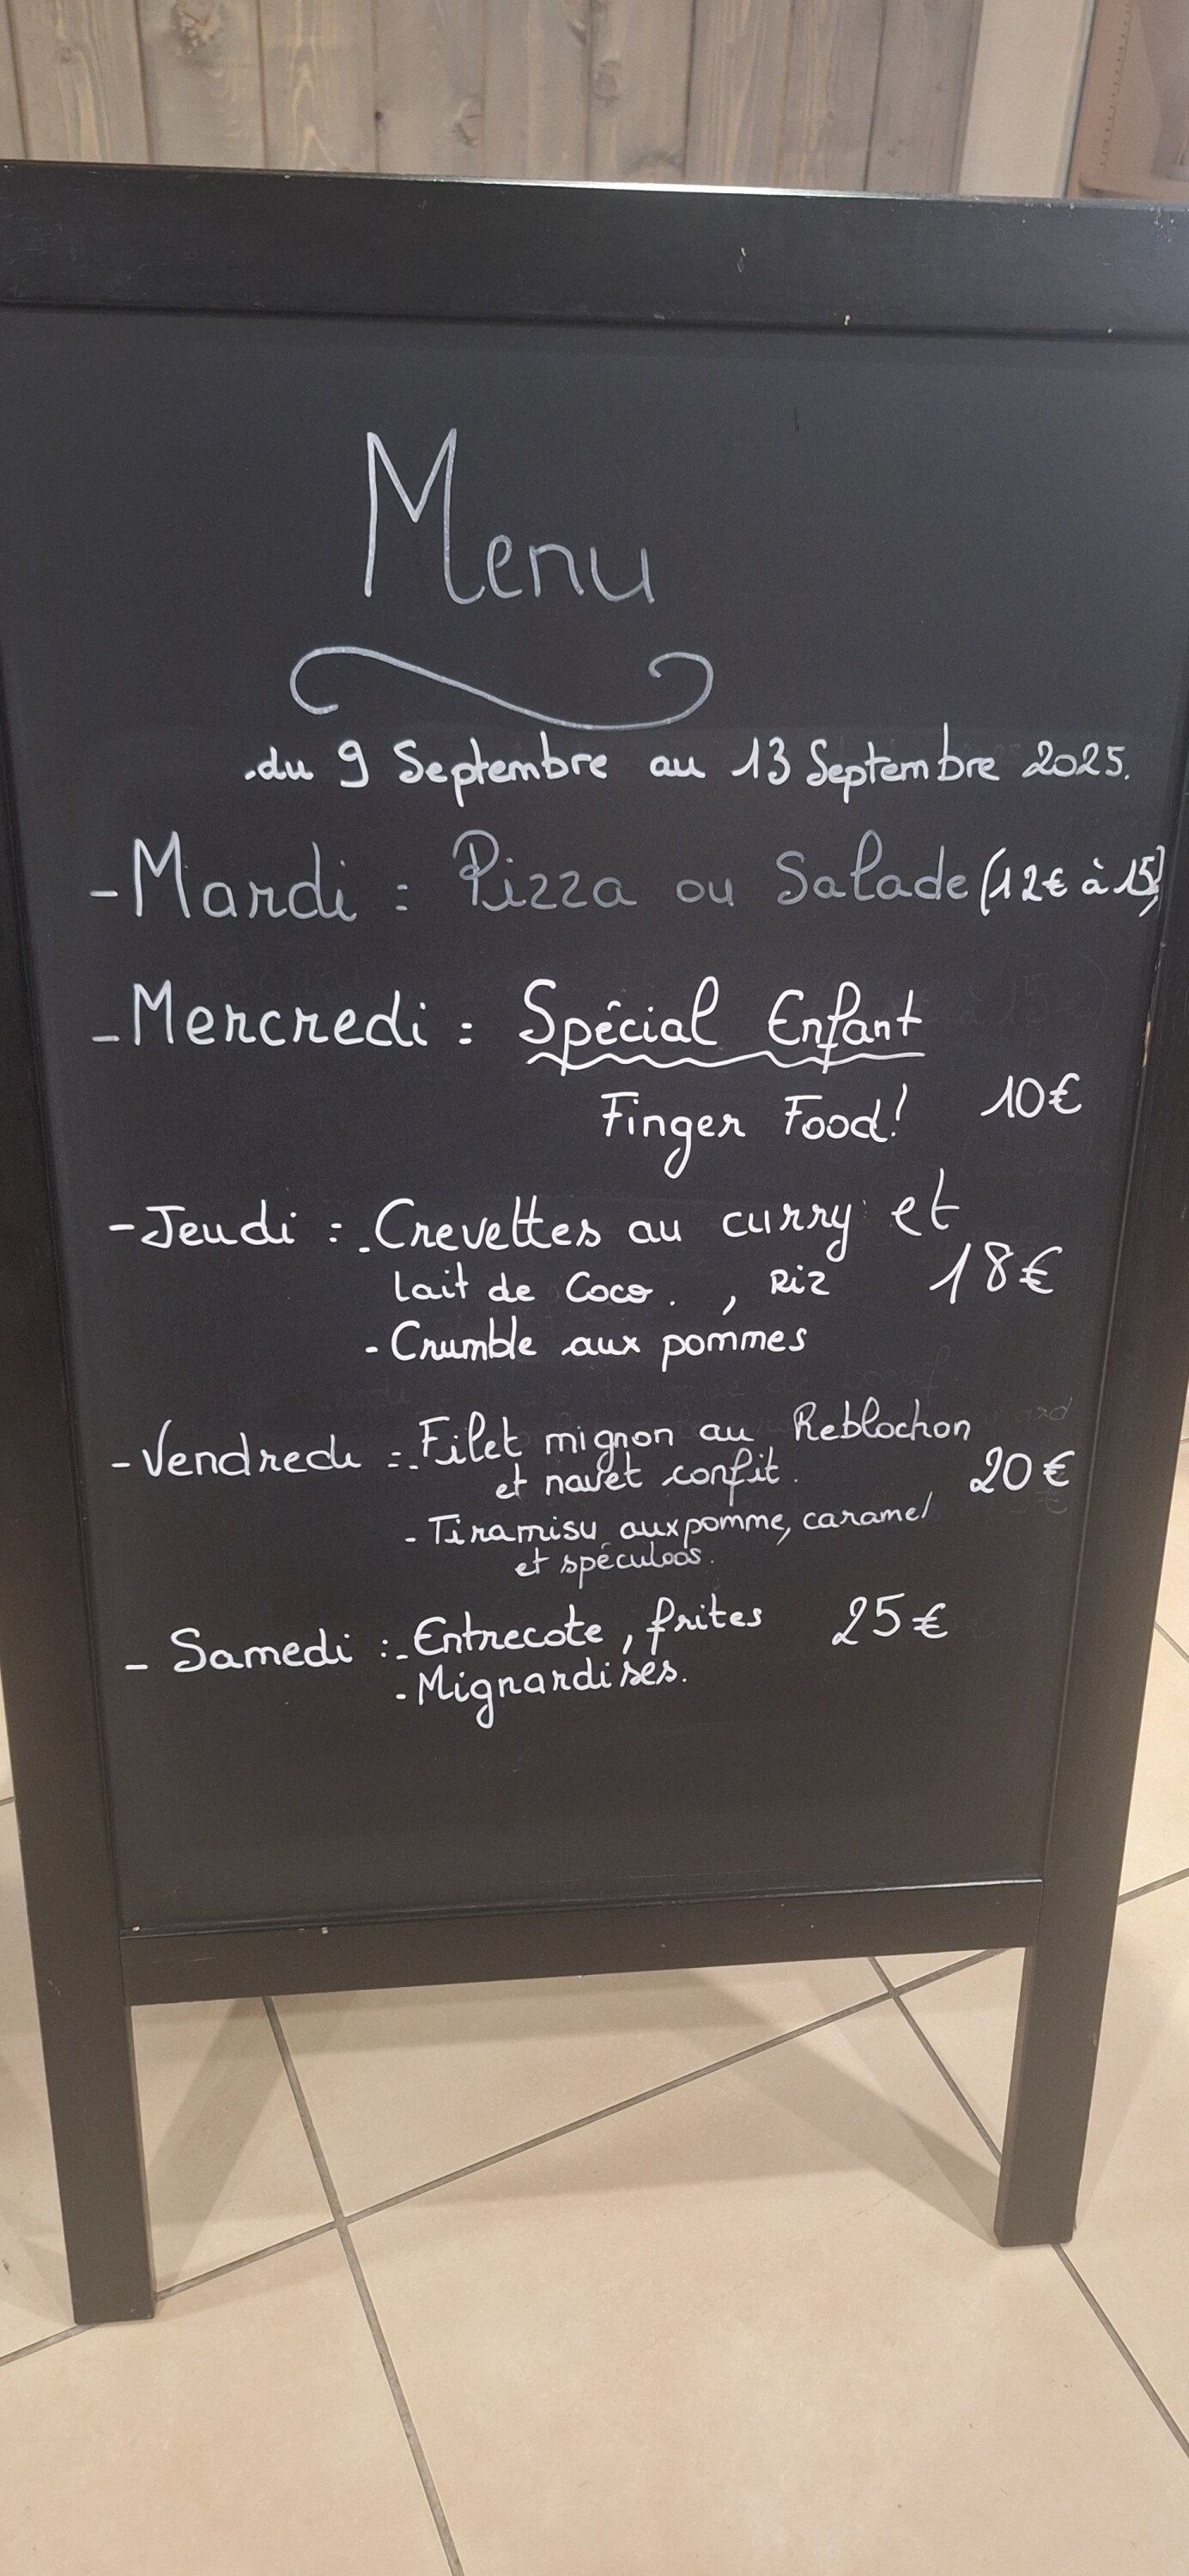 Menu
.du 9 Septembre au 13 Septembre 2025.
- Mardi : Pizza ou Salade (12€ à 15)
- Mercredi : Spécial Enfant
Finger Food! 10€
- Jeudi : - Crevettes au curry et
lait de Coco . , Riz 18€
- Crumble aux pommes
- Vendredi : - Filet mignon au Reblochon
et navet confit. 20€
- Tiramisu aux pomme, caramel
et spéculoos.
- Samedi : - Entrecote, frites 25€
- Mignardises.